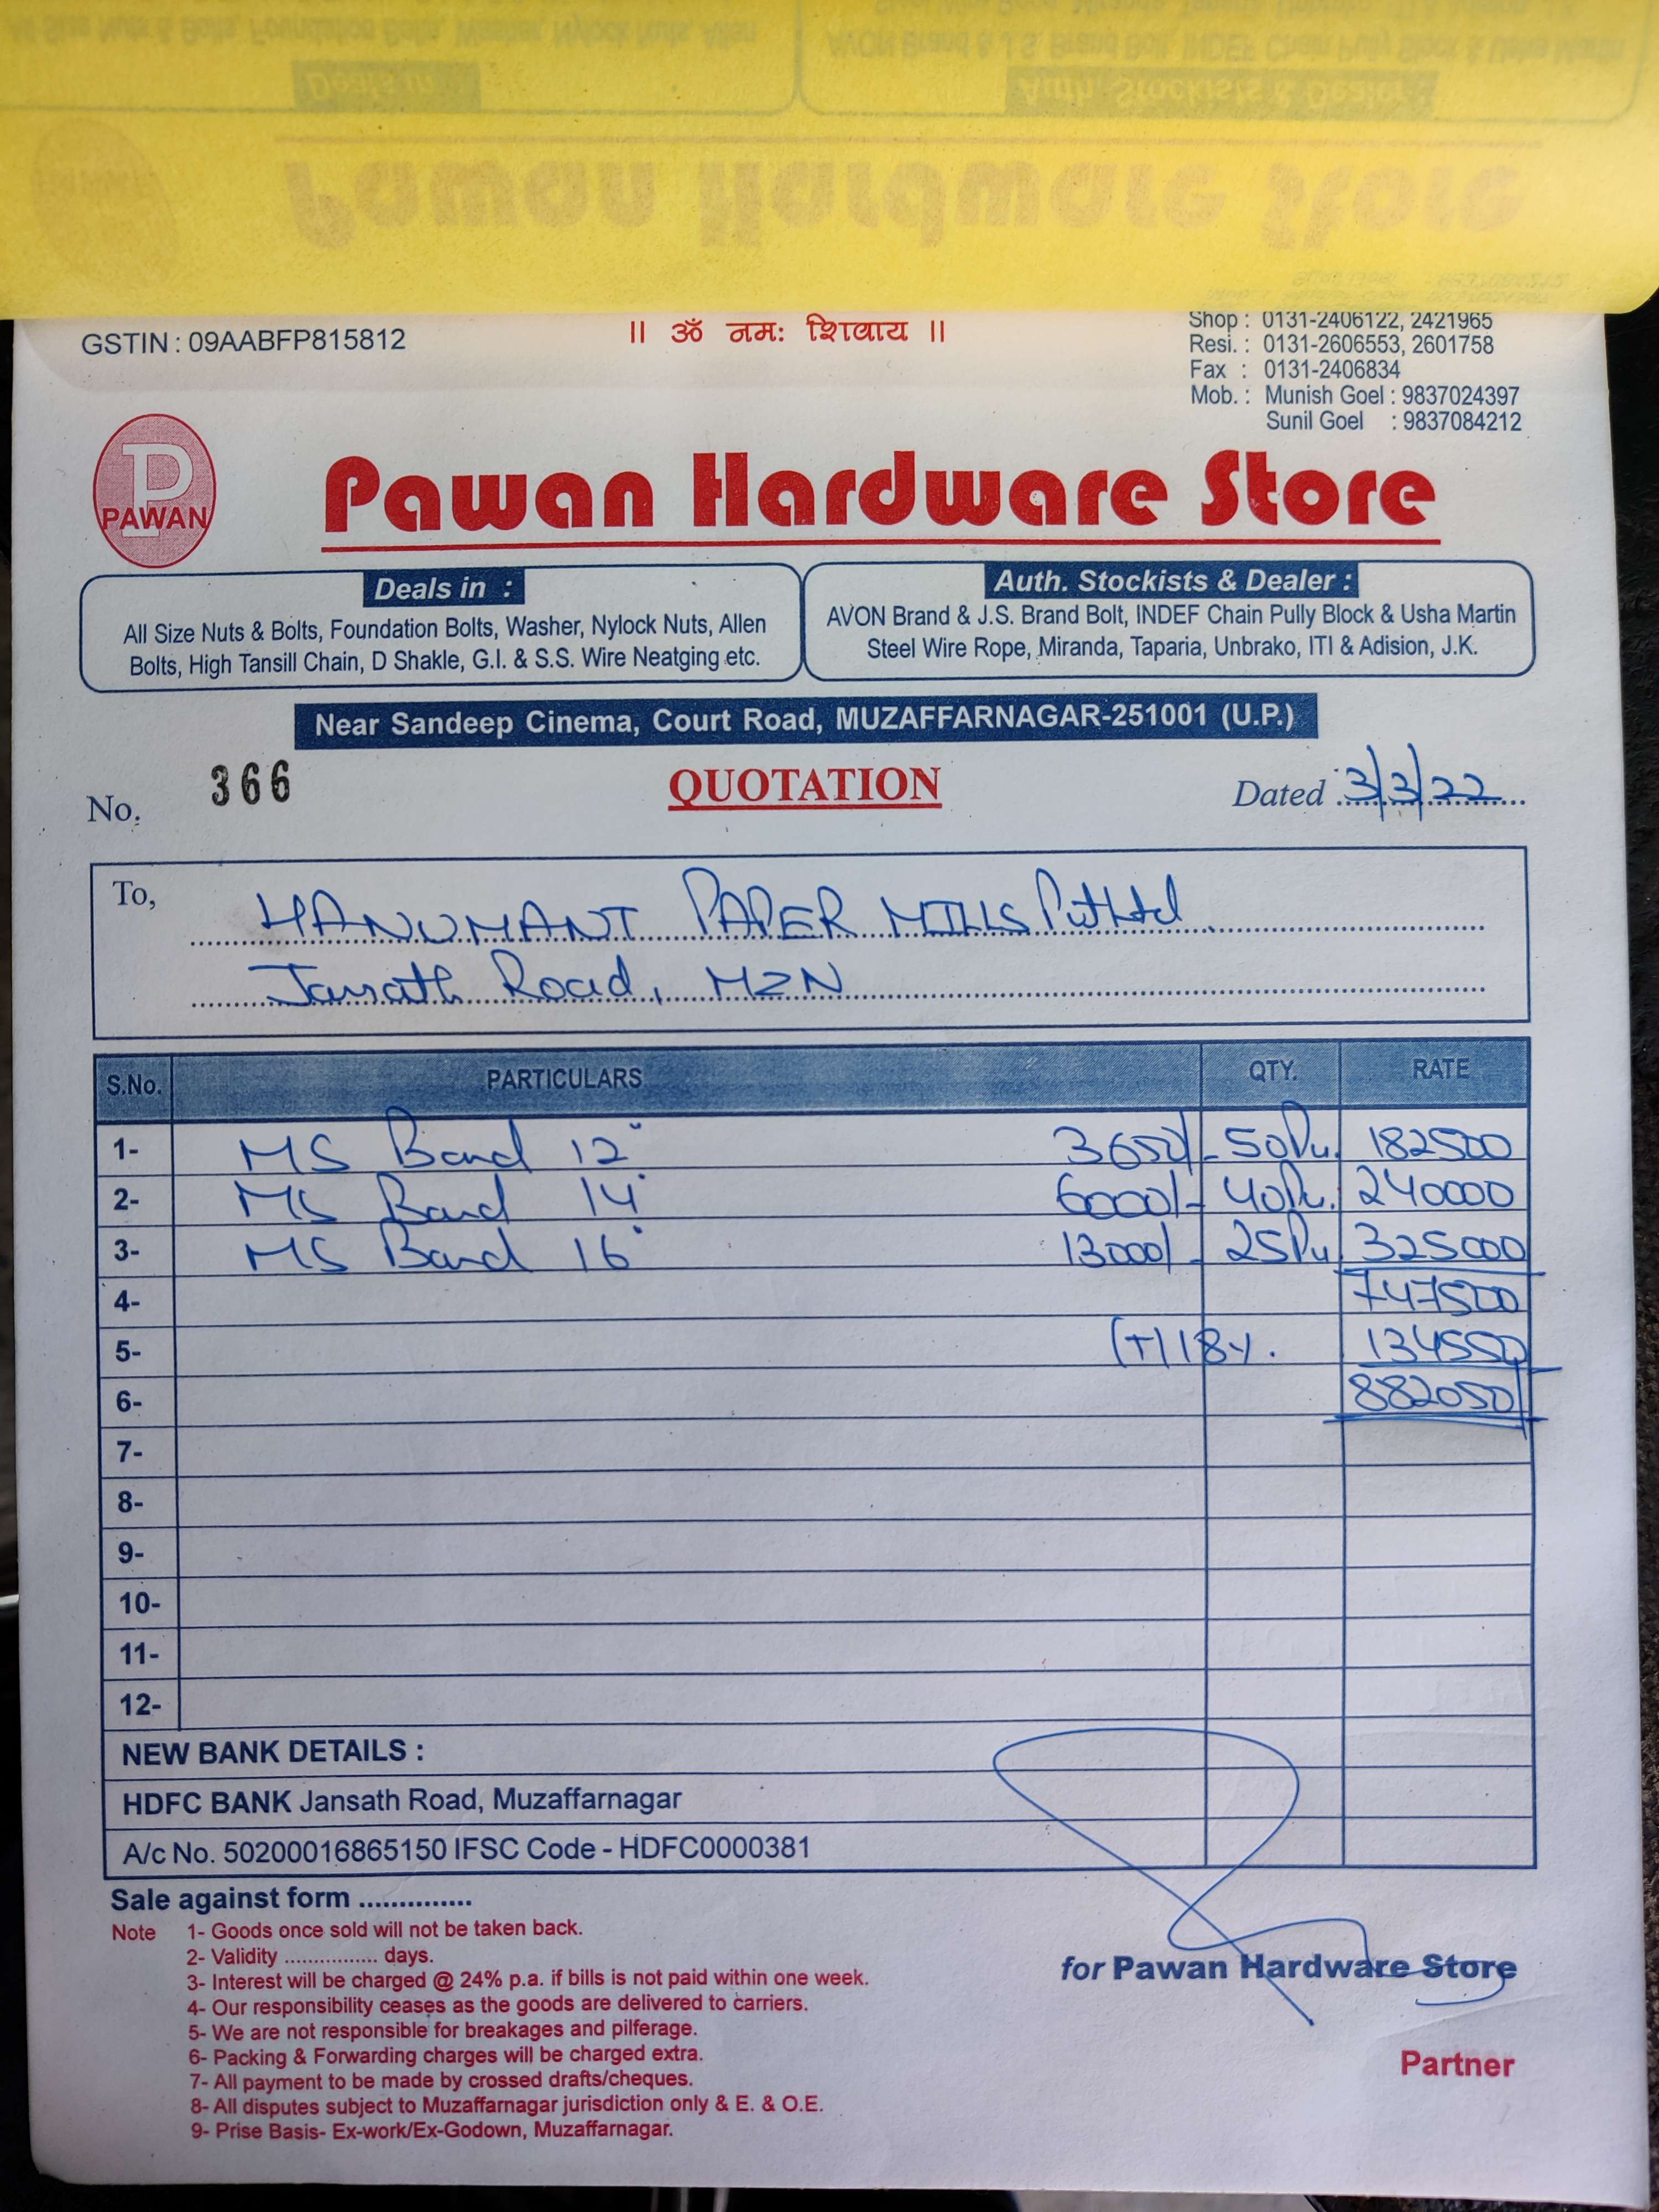 GSTIN : 09AABFP815812
|| ॐ नमः शिवाय ||
Shop : 0131-2406122, 2421965
Resi. : 0131-2606553, 2601758
Fax : 0131-2406834
Mob. : Munish Goel : 9837024397
Sunil Goel : 9837084212
P
PAWAN
Pawan Hardware Store
Deals in :
All Size Nuts & Bolts, Foundation Bolts, Washer, Nylock Nuts, Allen
Bolts, High Tansill Chain, D Shakle, G.I. & S.S. Wire Neatging etc.
Auth. Stockists & Dealer :
AVON Brand & J.S. Brand Bolt, INDEF Chain Pully Block & Usha Martin
Steel Wire Rope, Miranda, Taparia, Unbrako, ITI & Adision, J.K.
Near Sandeep Cinema, Court Road, MUZAFFARNAGAR-251001 (U.P.)
No. 366
QUOTATION
Dated 3/3/22
To,
HANUMANT PAPER MILLS Pvt Ltd
Jansath Road, MZN
S.No. PARTICULARS QTY. RATE
1- MS Band 12" 3650/- 50Pc. 182500
2- MS Band 14" 6000/- 40Pc. 240000
3- MS Band 16" 13000/- 25Pc. 325000
4- 747500
5- (+) 18%. 134550
6- 882050
7-
8-
9-
10-
11-
12-
NEW BANK DETAILS :
HDFC BANK Jansath Road, Muzaffarnagar
A/c No. 50200016865150 IFSC Code - HDFC0000381
Sale against form ..............
Note 1- Goods once sold will not be taken back.
2- Validity ................ days.
3- Interest will be charged @ 24% p.a. if bills is not paid within one week.
4- Our responsibility ceases as the goods are delivered to carriers.
5- We are not responsible for breakages and pilferage.
6- Packing & Forwarding charges will be charged extra.
7- All payment to be made by crossed drafts/cheques.
8- All disputes subject to Muzaffarnagar jurisdiction only & E. & O.E.
9- Prise Basis- Ex-work/Ex-Godown, Muzaffarnagar.
for Pawan Hardware Store
Partner